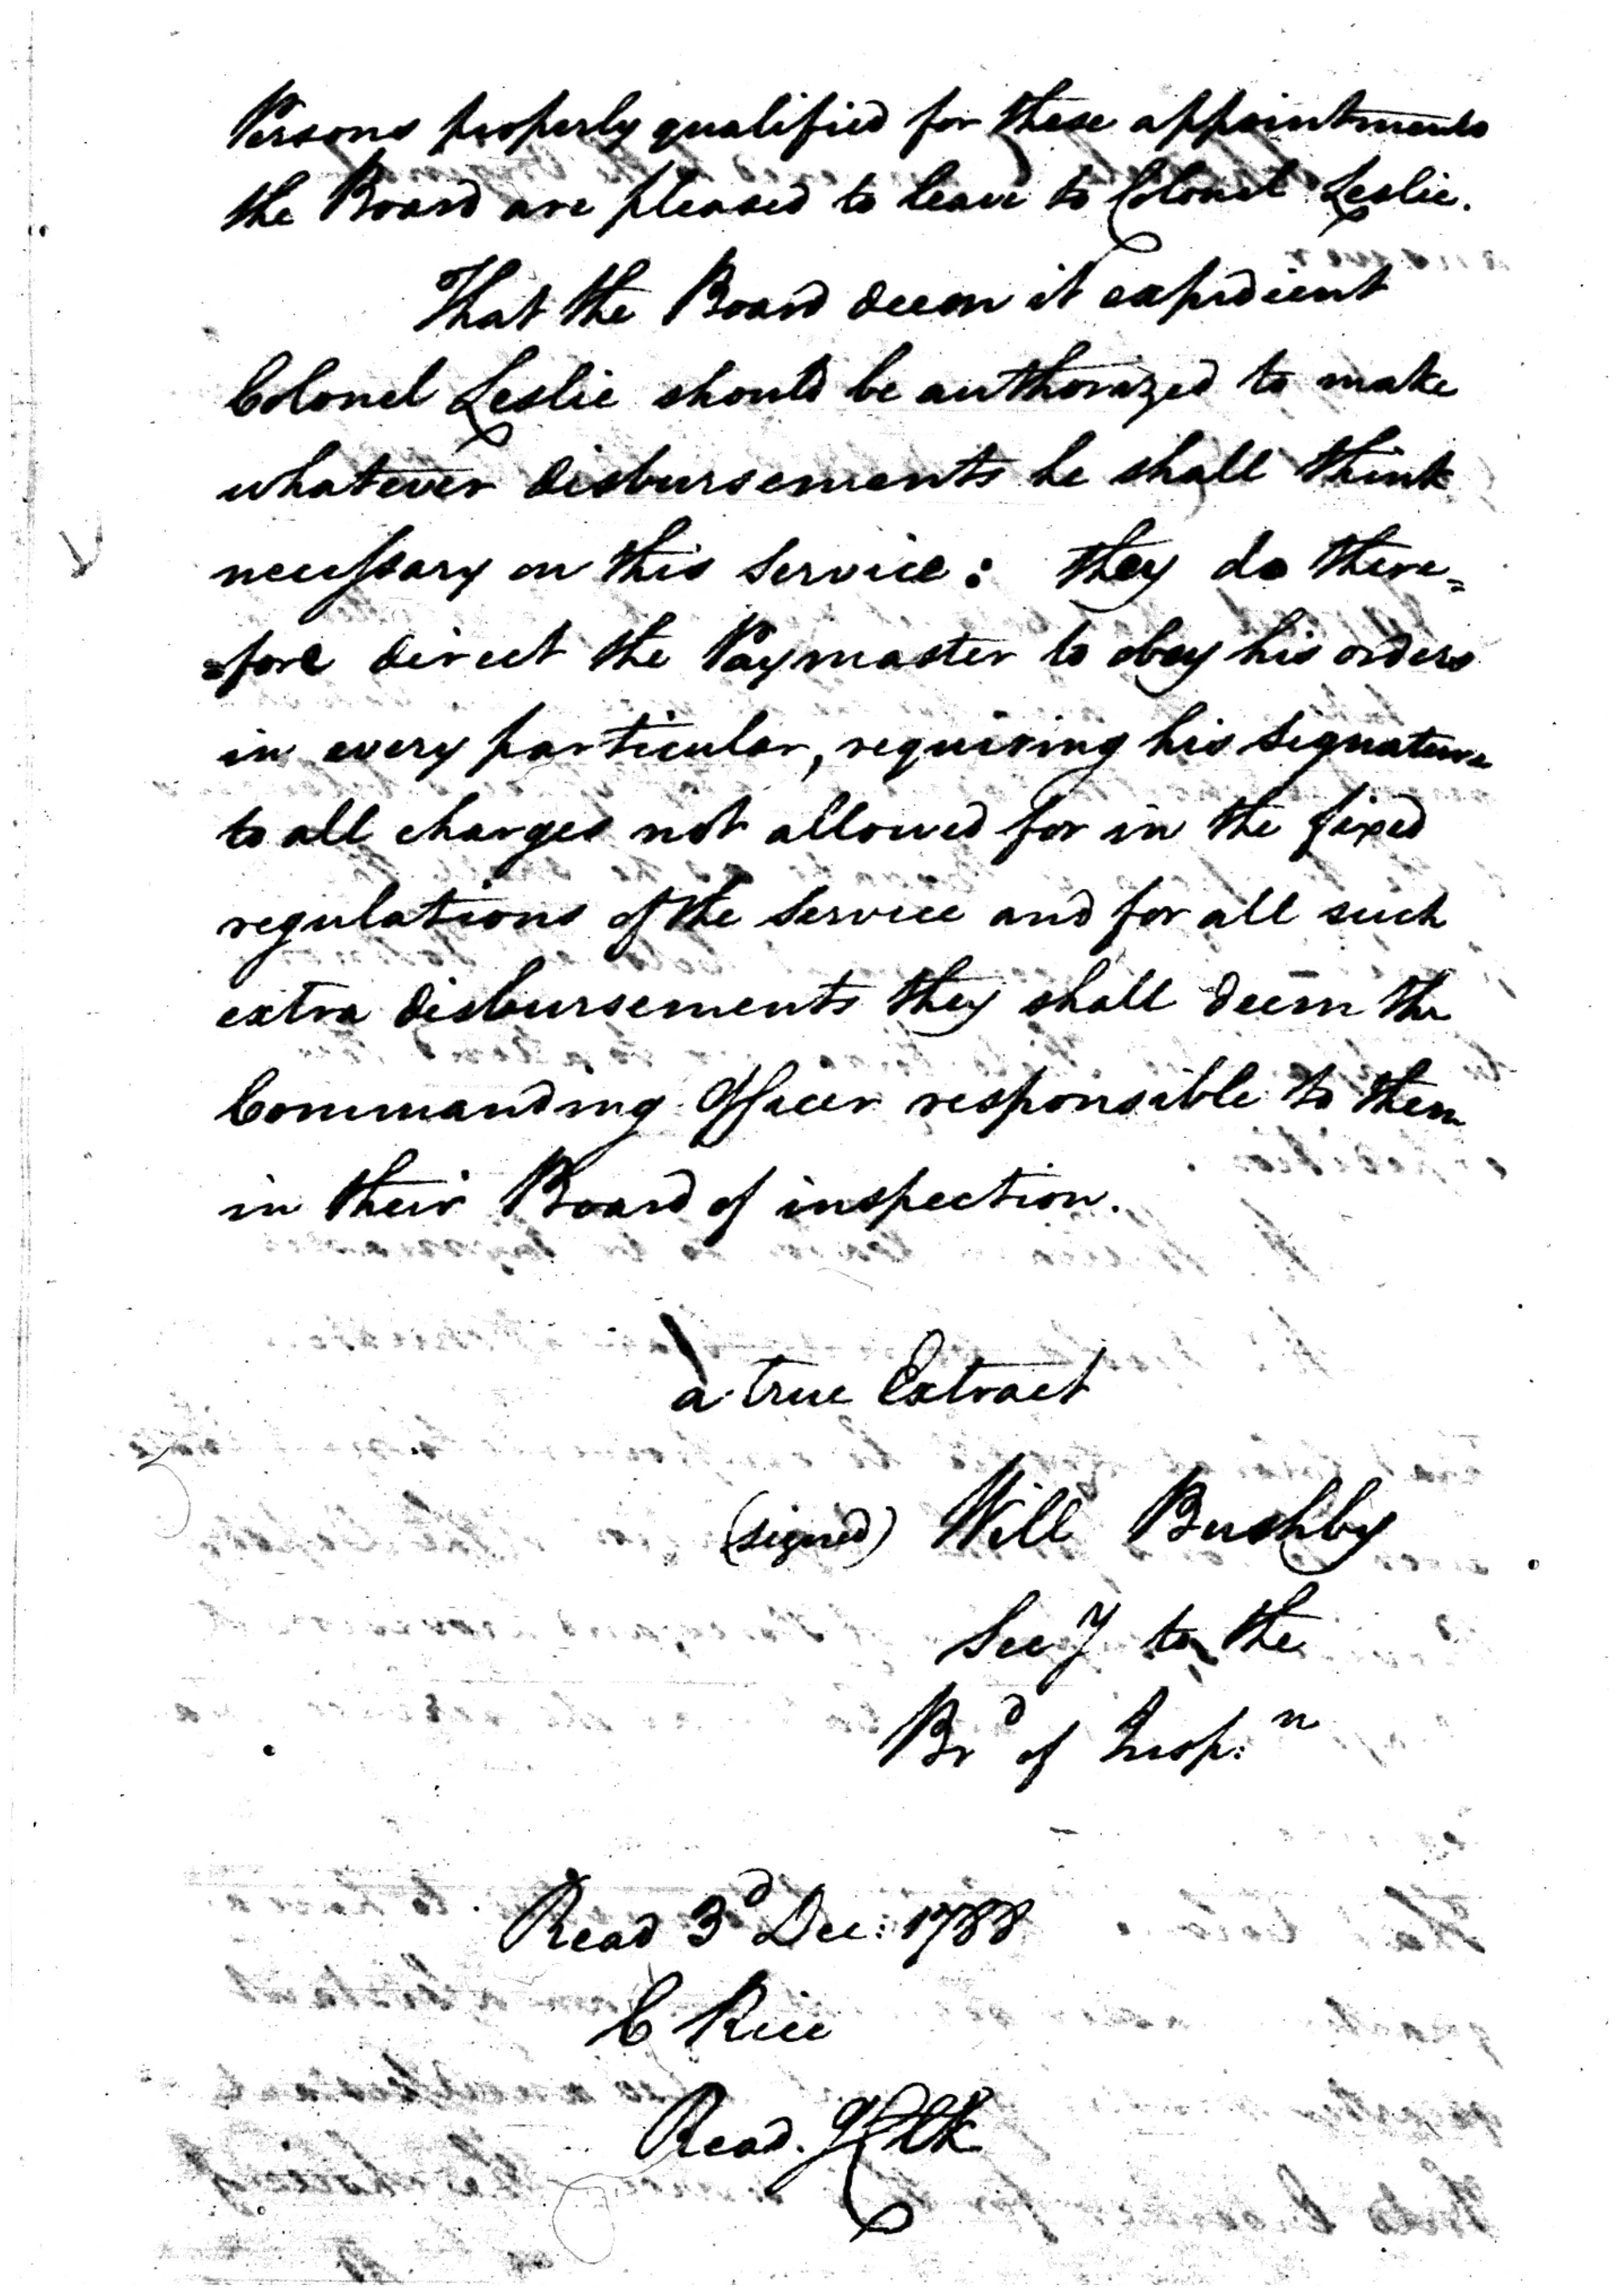 Persons properly qualified for these appointments
the Board are pleased to leave to Colonel Leslie.
That the Board deem it expedient
Colonel Leslie should be authorized to make
whatever disbursements he shall think
necessary on this Service: they do there=
=fore direct the Paymaster to obey his orders
in every particular, requiring his signature
to all charges not allowed for in the fixed
regulations of the Service and for all such
extra disbursements they shall deem the
Commanding Officer responsible to them
in their Board of inspection.
a true Extract
(signed) Will Bushby
Secy to the
Brd of Insp:n
Read 3d Dec: 1788
C Rice
Read.